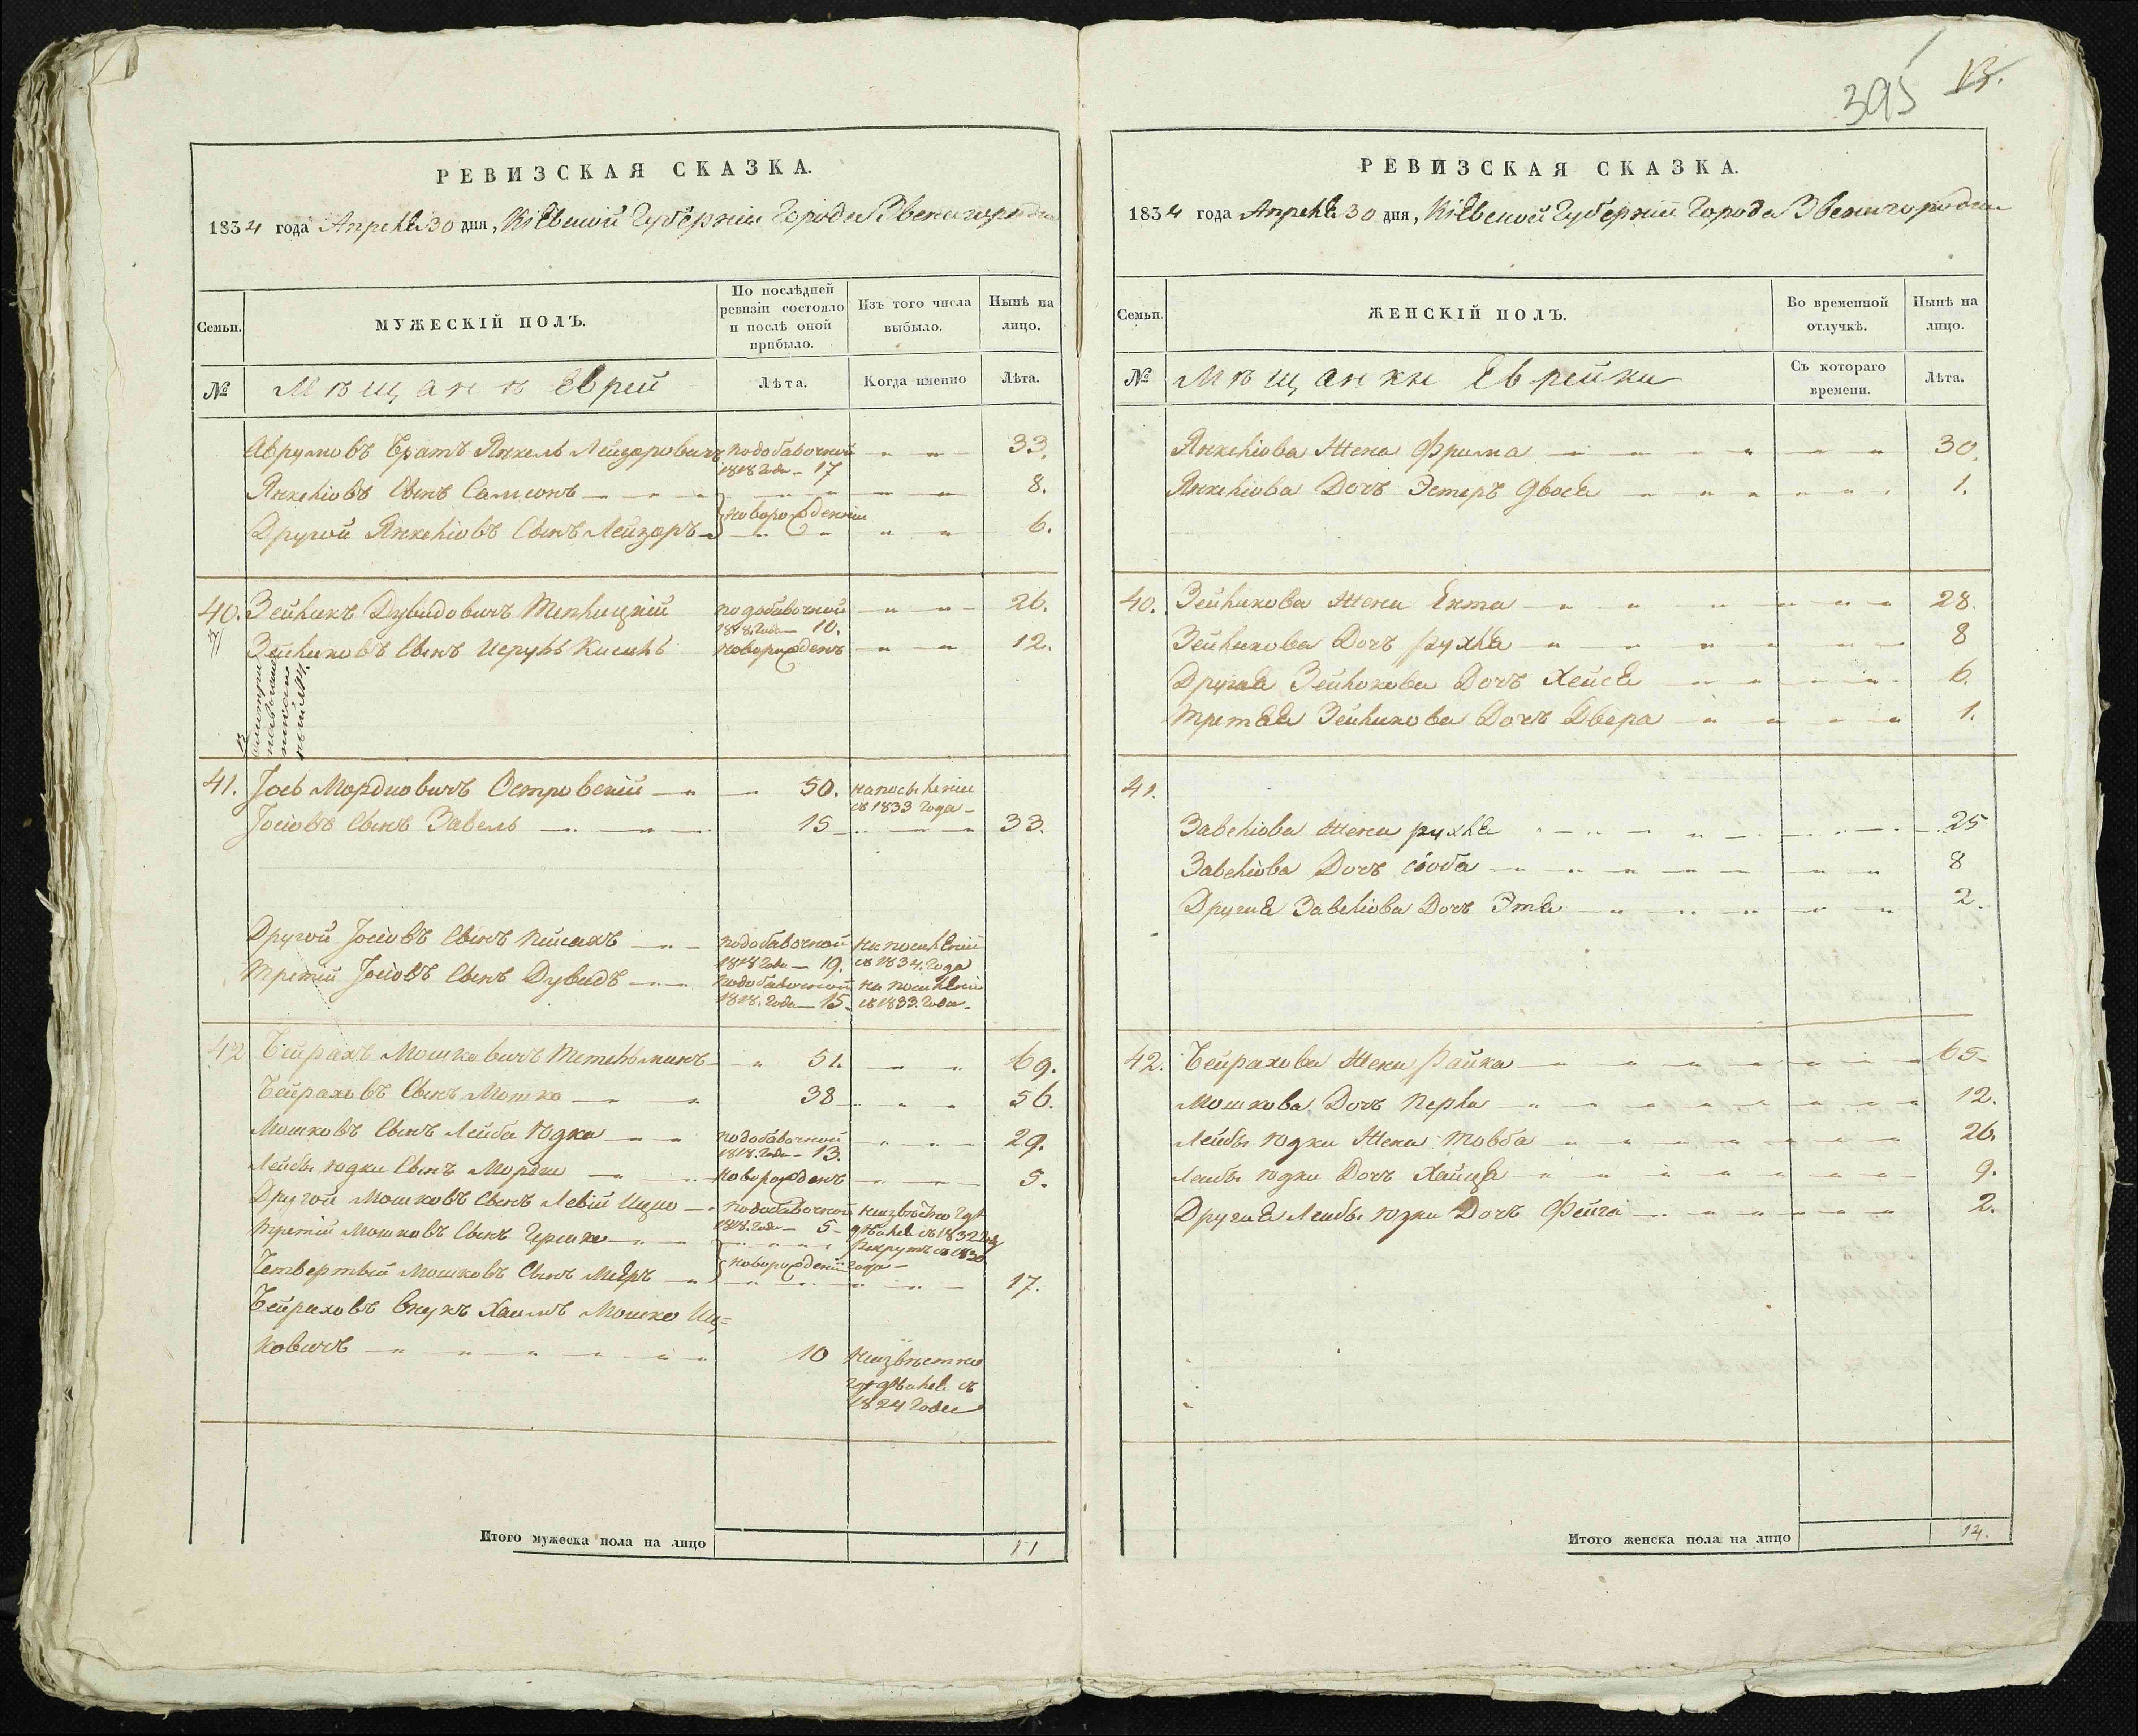 395 13.
РЕВИЗСКАЯ СКАЗКА.
1834 года Апреля 30 дня, Кіевской Губерніи Города Звенигородки
Семьи.
МУЖЕСКІЙ ПОЛЪ.
По послѣдней ревизіи состояло и послѣ оной прибыло.
Изъ того числа выбыло.
Нынѣ на лицо.
№
Мѣщанъ Еврей
Лѣта.
Когда именно
Лѣта.
Аврумовъ Братъ Янкель Лейзоровичъ подобавочной 1818 года – 17 33.
Янкеліовъ Сынъ Самсонъ 8.
Другой Янкеліовъ Сынъ Лейзоръ новорожденніи 6.
40. Зейликъ Дувидовичъ Теплицкій подобавочной 1818. Года – 10. 26.
Зейликовъ Сынъ Исруль Кисиль новорожденъ 12.
41. Іось Мордковичъ Островскій 50. на посѣленіи съ 1833 года
Іосіовъ Сынъ Завель 15 33.
Другой Іосіовъ Сынъ Пейсахъ подобавочной 1818 года – 19. на посиленіи съ 1834. Года
Третій Іосіовъ Сынъ Дувидъ подобавочной 1818. Года – 15. на посиленіи съ 1833. Года.
42 Бейрахъ Мошковичъ Тетельманъ 51. 69.
Бейраховъ Сынъ Мошко 38 56.
Мошковъ Сынъ Лейба Юдка подобавочной 1818. Года – 13. 29.
Лейбы Юдки Сынъ Мордко новорожденъ 5.
Другой Мошковъ Сынъ Левій Ицко подобавочной 1818. Года – 5 неизвѣстно где дѣвался съ 1832 года
Третій Мошковъ Сынъ Гершко рекрутъ съ 1830 года
Четвертый Мошковъ Сынъ Меяръ новорожденіи 17.
Бейраховъ Внукъ Хаимъ Мошко Иц=
ковичъ 10 Неизвѣстно
где дѣвался съ
1824 Года
Итого мужеска пола на лицо 11
РЕВИЗСКАЯ СКАЗКА.
1834 года Апреля 30 дня, Кіевской Губерніи Города Звенигородки
Семьи.
ЖЕНСКІЙ ПОЛЪ.
Во временной отлучкѣ.
Нынѣ на лицо.
№
Мѣщанки Еврейки
Съ котораго времени.
Лѣта.
Янкеліова Жена Фрима 30.
Янкеліова Дочъ Эстеръ Двося 1.
40. Зейликова Жена Ента 28.
Зейликова Дочъ рухля 8
Другая Зейликова Дочъ Хейся 6.
Третяя Зейликова Дочъ Двера 1.
41.
Завеліова Жена рухля 25
Завеліова Дочъ сіоба 8
Другая Завеліова Дочъ Этя 2.
42. Бейрахова Жена Райка 65
Мошкова Дочъ Перла 12.
Лейбы Юдки Жена Товба 26.
Лейбы Юдки Дочъ Хайця 9.
Другая Лейбы Юдки Дочъ Фейга 2.
Итого женска пола на лицо 14.